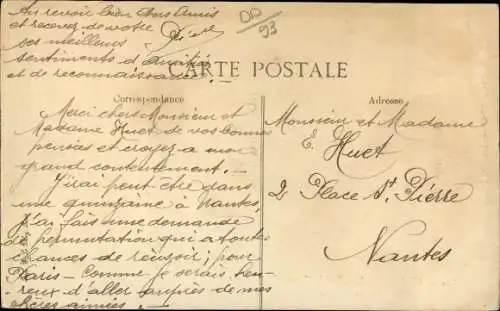 Au revoir bien chers Amis
et recevez de votre
ses meilleurs
sentiments d'amitié
et de reconnaissance.
DD
93
CARTE POSTALE
Correspondance
Adresse
Merci chers Monsieur et
Madame Huet de vos bonnes
pensées et croyez a mon
grand contentement. —
J'irai peut etre dans
une quinzaine à Nantes,
j'ai fais une demande
de permutation qui a toutes
chances de réussir; pour
Paris — Comme je serais heu-
reux d'aller auprès de mes
chères aimées! —
Monsieur et Madame
E. Huet
2 Place St. Pierre
Nantes